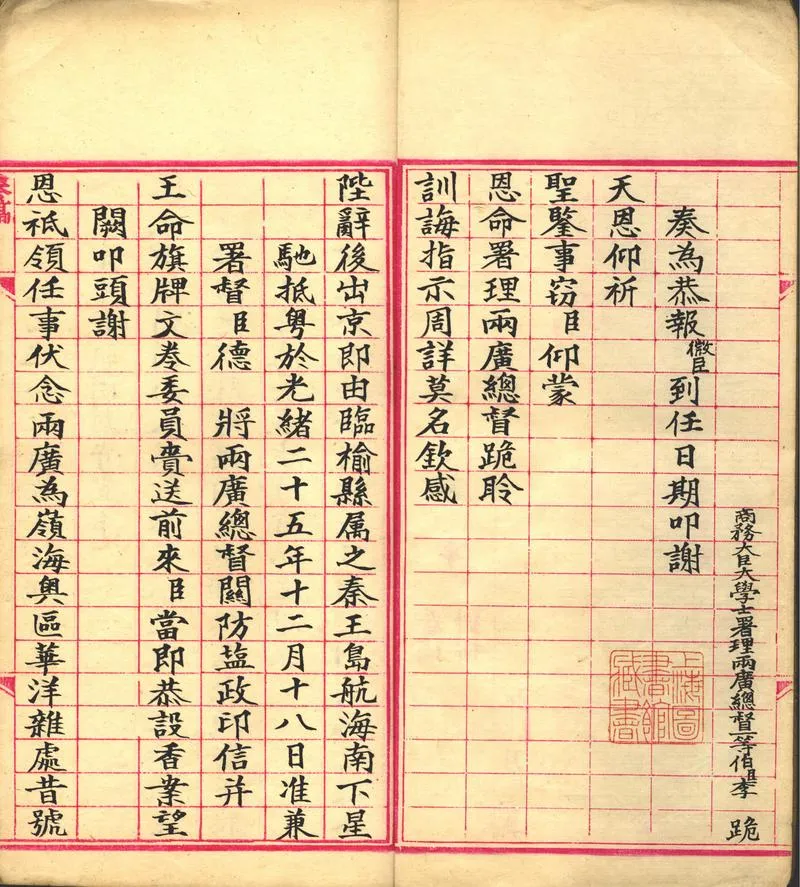 商務大臣大學士署理兩廣總督一等伯臣李 跪
奏為恭報微臣到任日期叩謝
天恩仰祈
聖鑒事竊臣仰蒙
恩命署理兩廣總督跪聆
訓誨指示周詳莫名欽感
陛辭後出京即由臨榆縣属之秦王島航海南下星
馳抵粤於光緒二十五年十二月十八日准兼
署督臣德 將兩廣總督關防盐政印信并
王命旗牌文卷委員賫送前來臣當即恭設香案望
闕叩頭謝
恩祗領任事伏念兩廣為嶺海奥區華洋雜處昔號
上海圖
書館
藏書